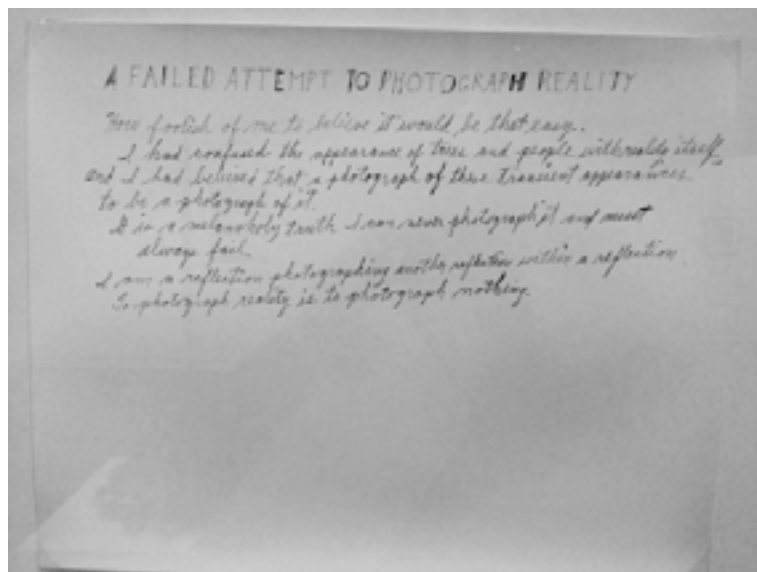 A FAILED ATTEMPT TO PHOTOGRAPH REALITY
How foolish of me to believe it would be that easy.
I had confused the appearance of trees and people with reality itself
and I had believed that a photograph of these transient appearances
to be a photograph of it.
It is a melancholy truth I can never photograph it and must
always fail.
I am a reflection photographing another reflection within a reflection.
To photograph reality is to photograph nothing.